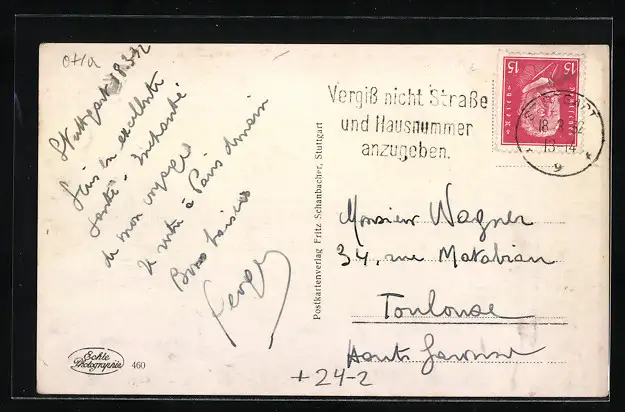 Stuttgart 18.3.32
Suis en excellente
santé - Enchanté
de mon voyage
Je rentre à Paris demain
Bons baisers
Echte
Photographie
460
Postkartenverlag Fritz Schanbacher, Stuttgart
Vergiß nicht Straße
und Hausnummer
anzugeben.
15 15
18.3.32
13-14
9
Monsieur Wagner
34, rue Matabiau
Toulouse
Haute Garonne
+24-2